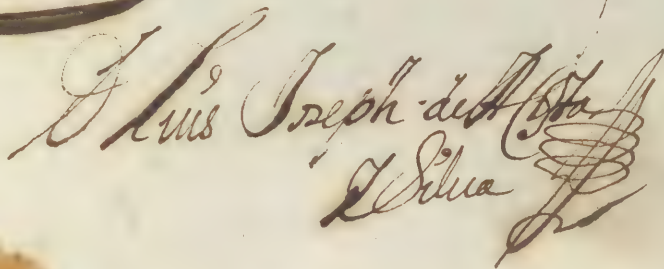 D Luis Joseph de ACosta
Y Silua